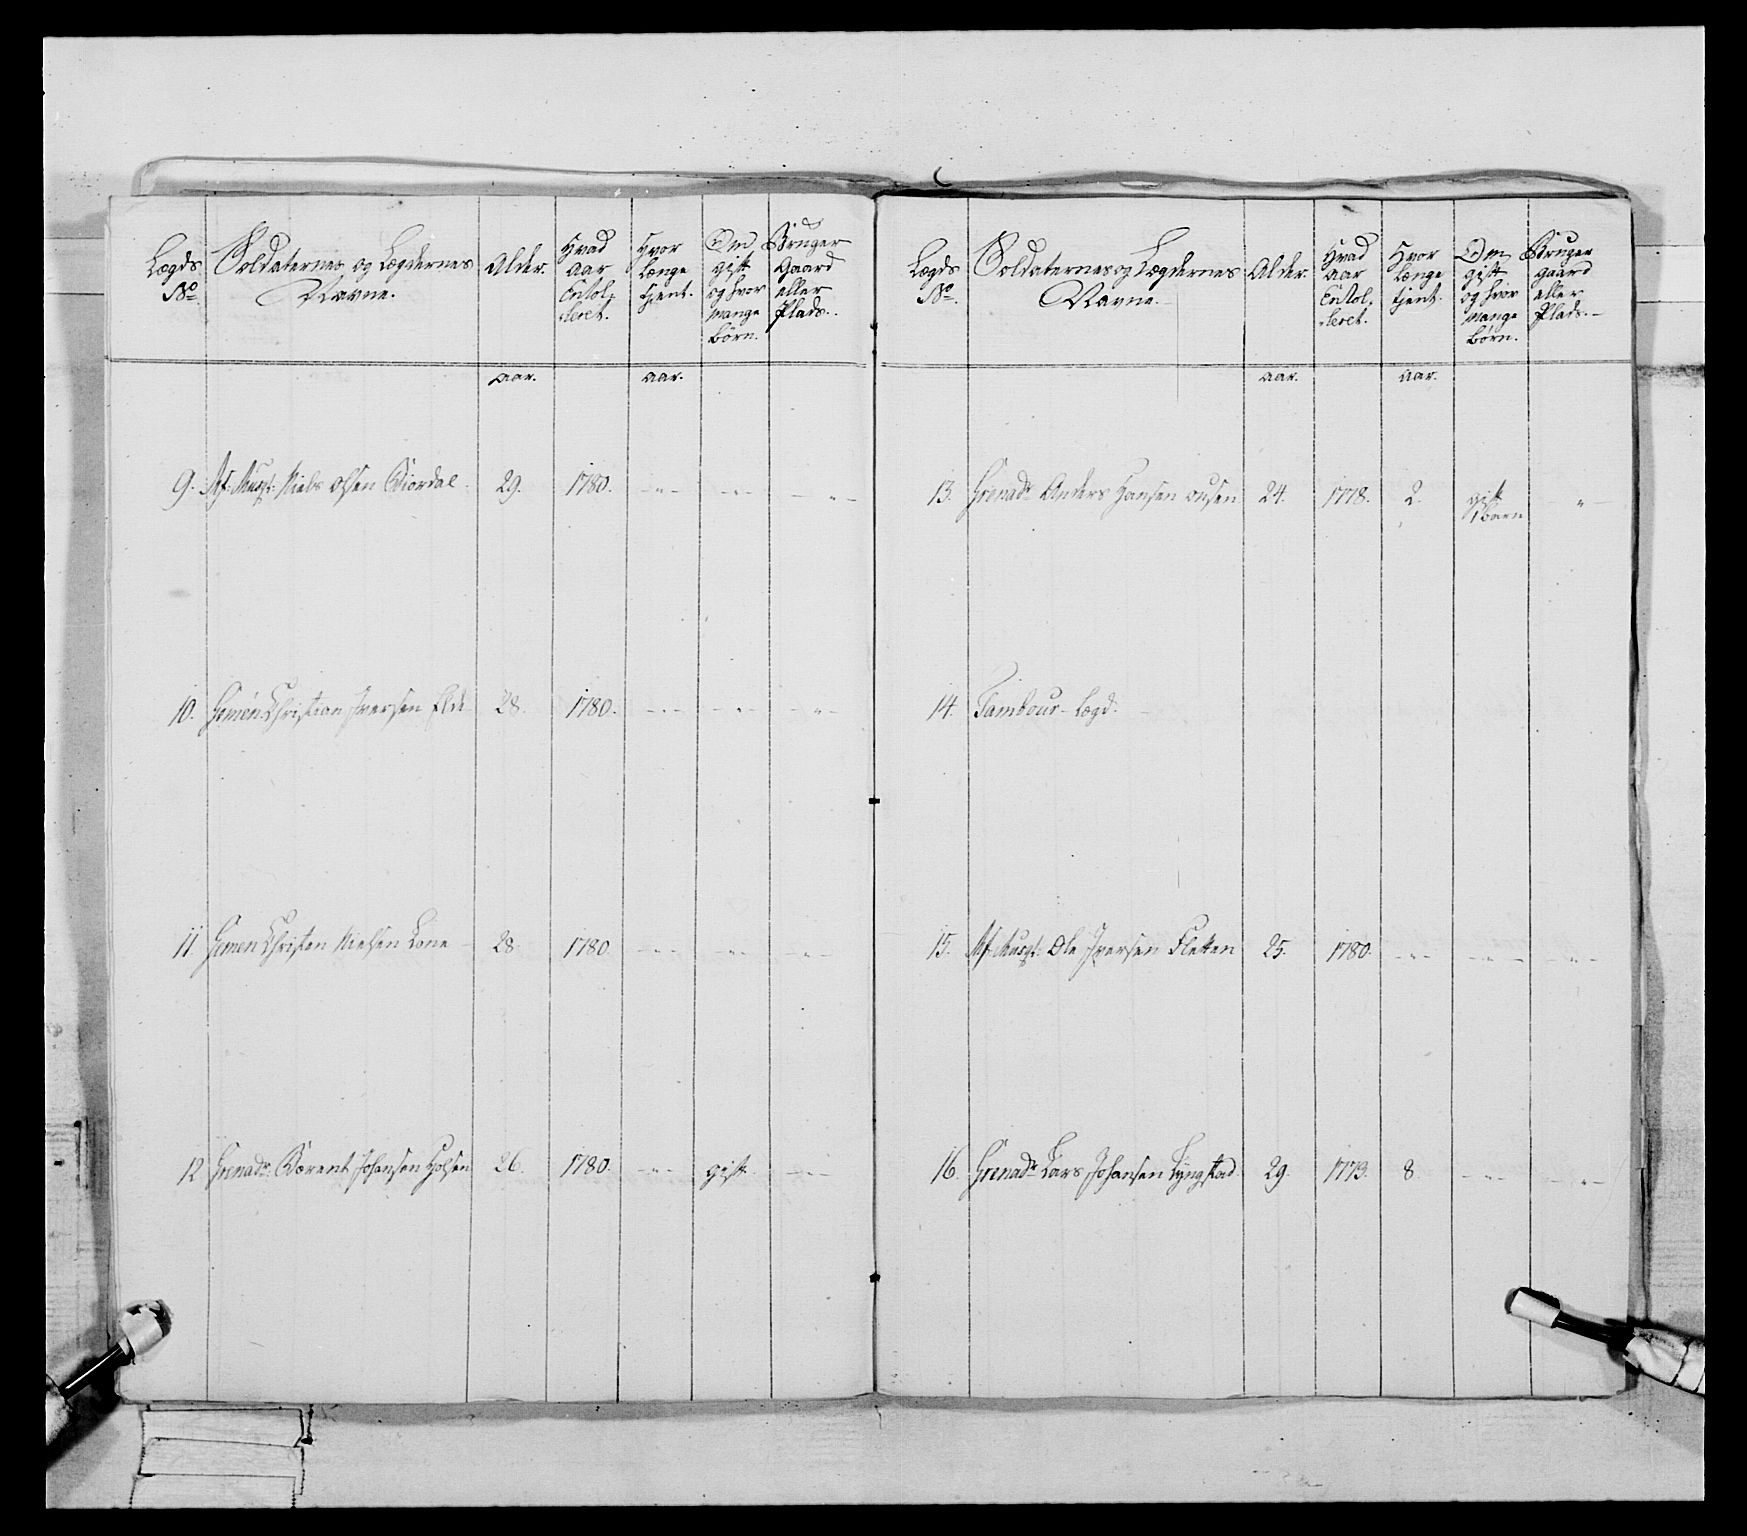 Lægds No.
Soldaternes og Lægdernes Navne.
Alder.
Hvad Aar Enrolleret.
Hvor Længe tjent.
Om gift og hvor mange Børn.
Bruger Gaard eller Plads.
Aar. Aar.
9. Niels Olsen 29. 1780. -"- -"- -"-
10. Christian Iversen 28. 1780. -"- -"- -"-
11. Christen Nielsen Lone 28 1780 -"- -"- -"-
12 Grenadr. Børent Johansen 26. 1780. -"- gift. -"-
Lægds No.
Soldaternes og Lægdernes Navne.
Alder.
Hvad Aar Enrolleret.
Hvor Længe tjent.
Om gift og hvor mange Børn.
Bruger Gaard eller Plads.
Aar. Aar.
13. Grenadr. Anders Hansen 24. 1778. 2. gift 1 Barn "
14. Tambour-Lægd.
15. Ole Iversen Fletten 25. 1780. -"- -"- -"-
16. Grenadr. Lars Johansen Lyngstad. 29. 1773. 8. -"- -"-